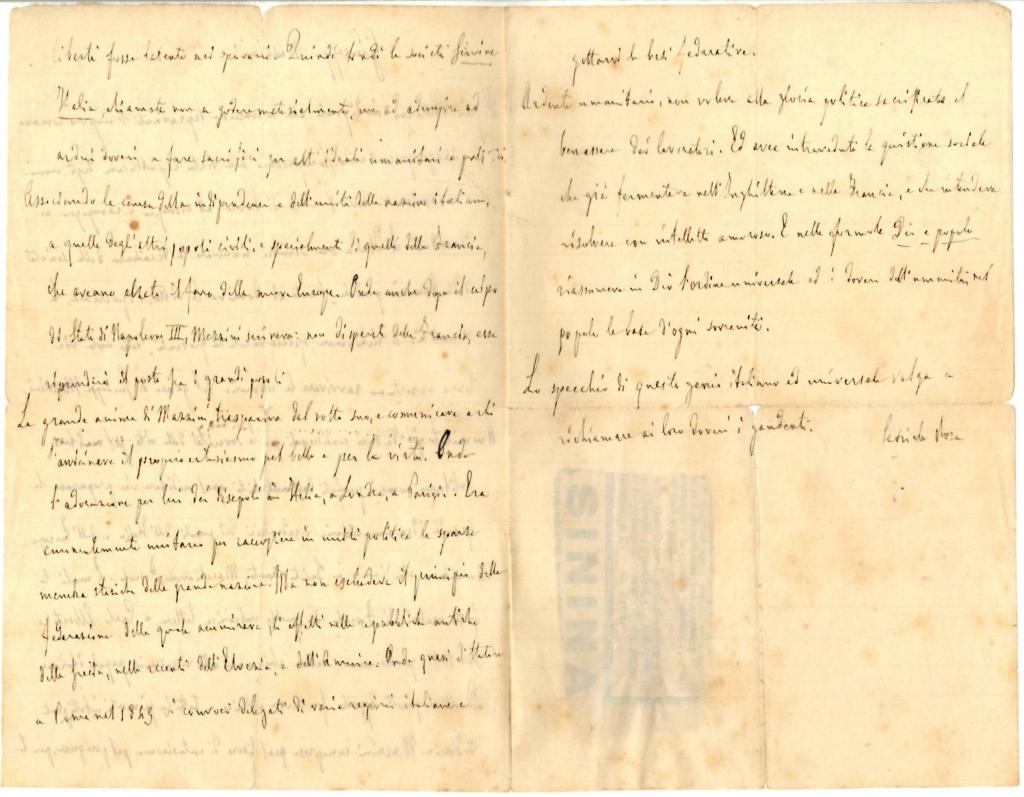 libertà fosse latente nei giovani. Quindi fondò la società Giovine
Italia, chiamata non a godere materialmente, ma ad adempire ad
ardui doveri, a fare sacrifici per alti ideali umanitari e politici
Associando la causa della indipendenza e dell'unità della nazione italiana,
a quella degli altri popoli civili, e specialmente di quelli della Francia,
che aveano alzato il faro della nuova Europa. Onde anche dopo il colpo
di Stato di Napoleone III, Mazzini scriveva: non disperate della Francia, essa
riprenderà il posto fra i grandi popoli
La grande anima di Mazzini traspariva dal volto suo, e comunicava a chi
l'avvicinava il proprio entusiasmo pel bello e per la virtù. Onde
l'adorazione per lui dei discepoli in Italia, a Londra, a Parigi. Era
eminentemente unitario per raccogliere in unità politica le sparse
membra storiche della grande nazione. Ma non escludeva il principio della
federazione della quale ammirava gli effetti nelle repubbliche antiche
della Grecia, nelle recenti dell'Elvezia, e dell'America. Onde quasi
a Roma nel 1849 si convocò delegati di varie regioni italiane a
gettarvi le basi federative.
Ardente umanitario, non voleva alla gloria politica sacrificato il
benessere dei lavoratori. Ed avea intraveduta la quistione sociale
che già fermentava nell'Inghilterra e nella Francia, e che intendeva
risolvere con intelletto amoroso. E nella formola Dio e popolo
riassumeva in Dio l'ordine universale ed i doveri dell'umanità, nel
popolo la base d'ogni sovranità.
Lo specchio di questo genio italiano ed universale valga a
richiamare ai loro doveri i gaudenti.
Gabriele Rosa
SININA